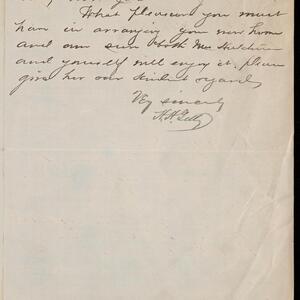 What pleasure you must
have in arranging your new home
and am sure both Mrs
and yourself will enjoy it. Please
give her our kindest regards
Very sincerely